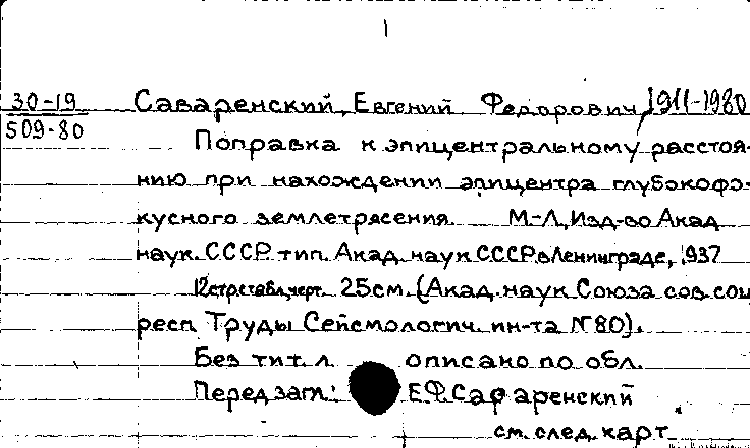 1
30-19 Саваренский, Евгений Федорович, 1911-1980
509-80
Поправка к эпицентральному расстоя-
нию при нахождении эпицентра глубокофо-
кусного землетрясения. М-Л, Изд-во Акад.
наук СССР, тип. Акад. наук СССР в Ленинграде, 1937
12 стр. с табл., черт. 25 см. (Акад. наук Союза сов. соц.
респ. Труды Сейсмологич. ин-та №80).
Без тит. л. описано по обл.
Перед загл.: Е.Ф. Саваренский
см. след. карт.